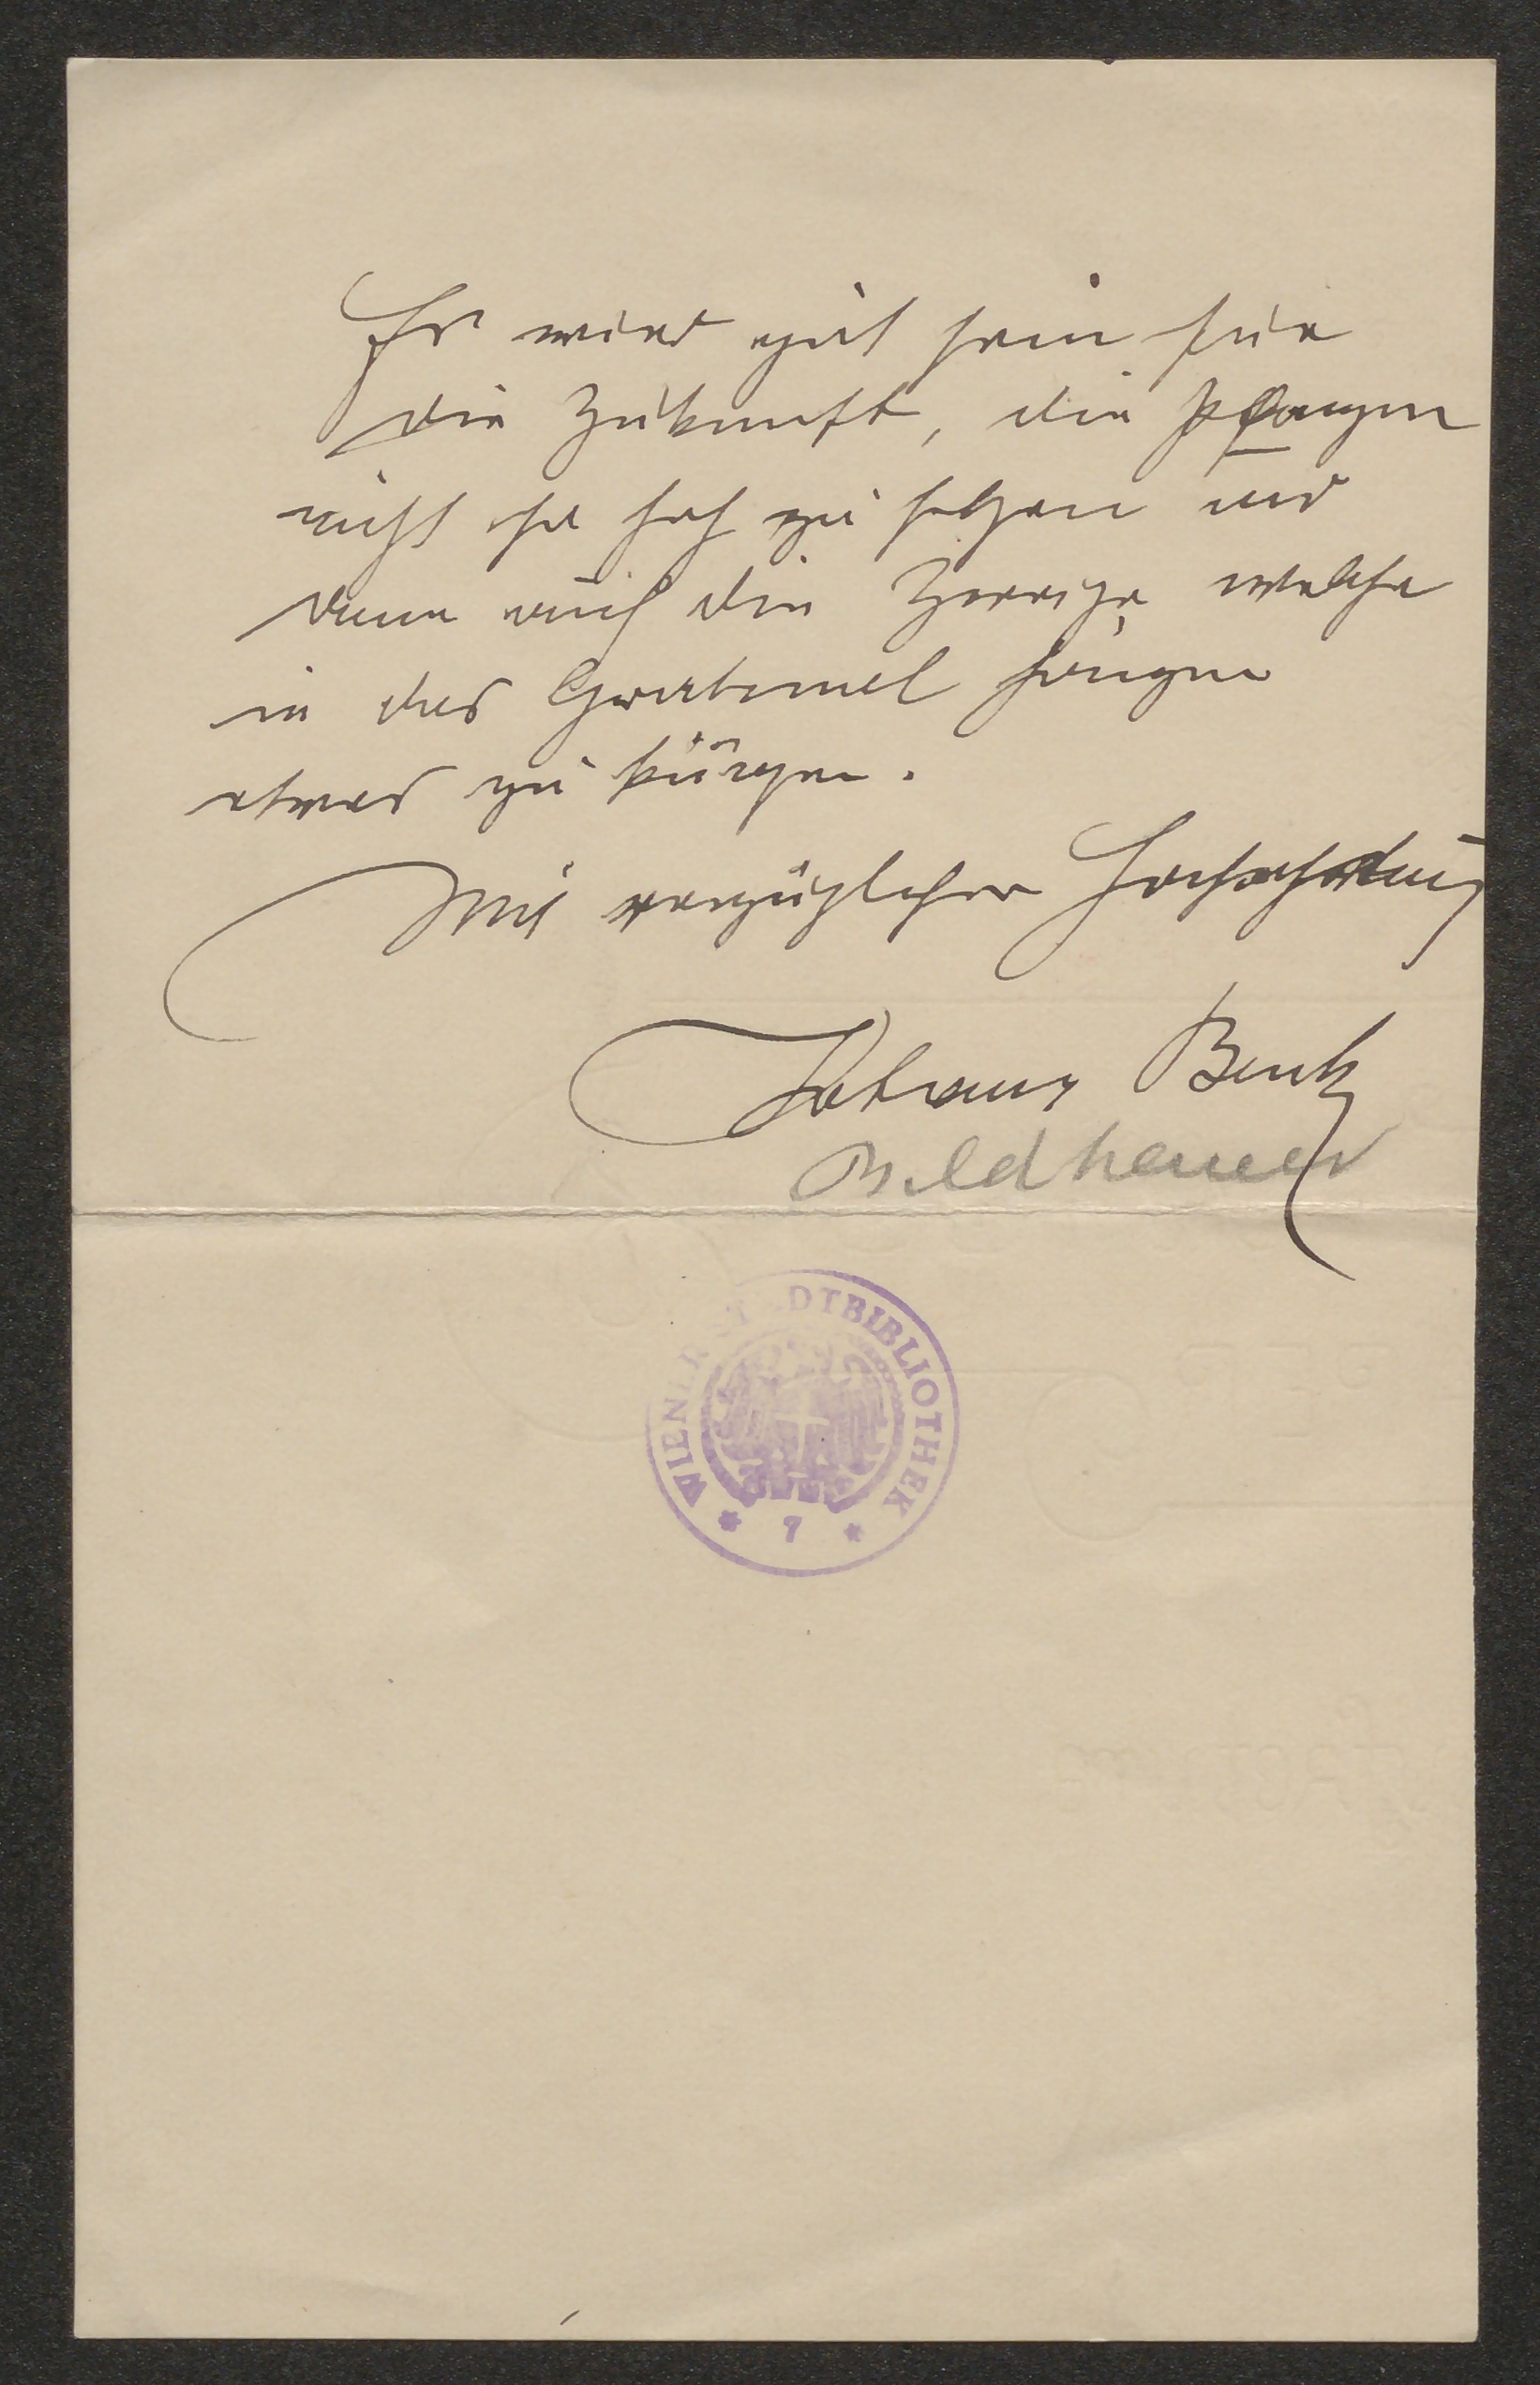 Es wird gut sein für
die Zukunft, die Pflanzen
nicht so hoch zu setzen und
dann auch die Zweige welche
in das Grabmal hängen
etwas zu kürzen.
Mit vorzüglicher Hochachtung
Johannes Benk
Bildhauer
WIENER STADTBIBLIOTHEK
* 7 *